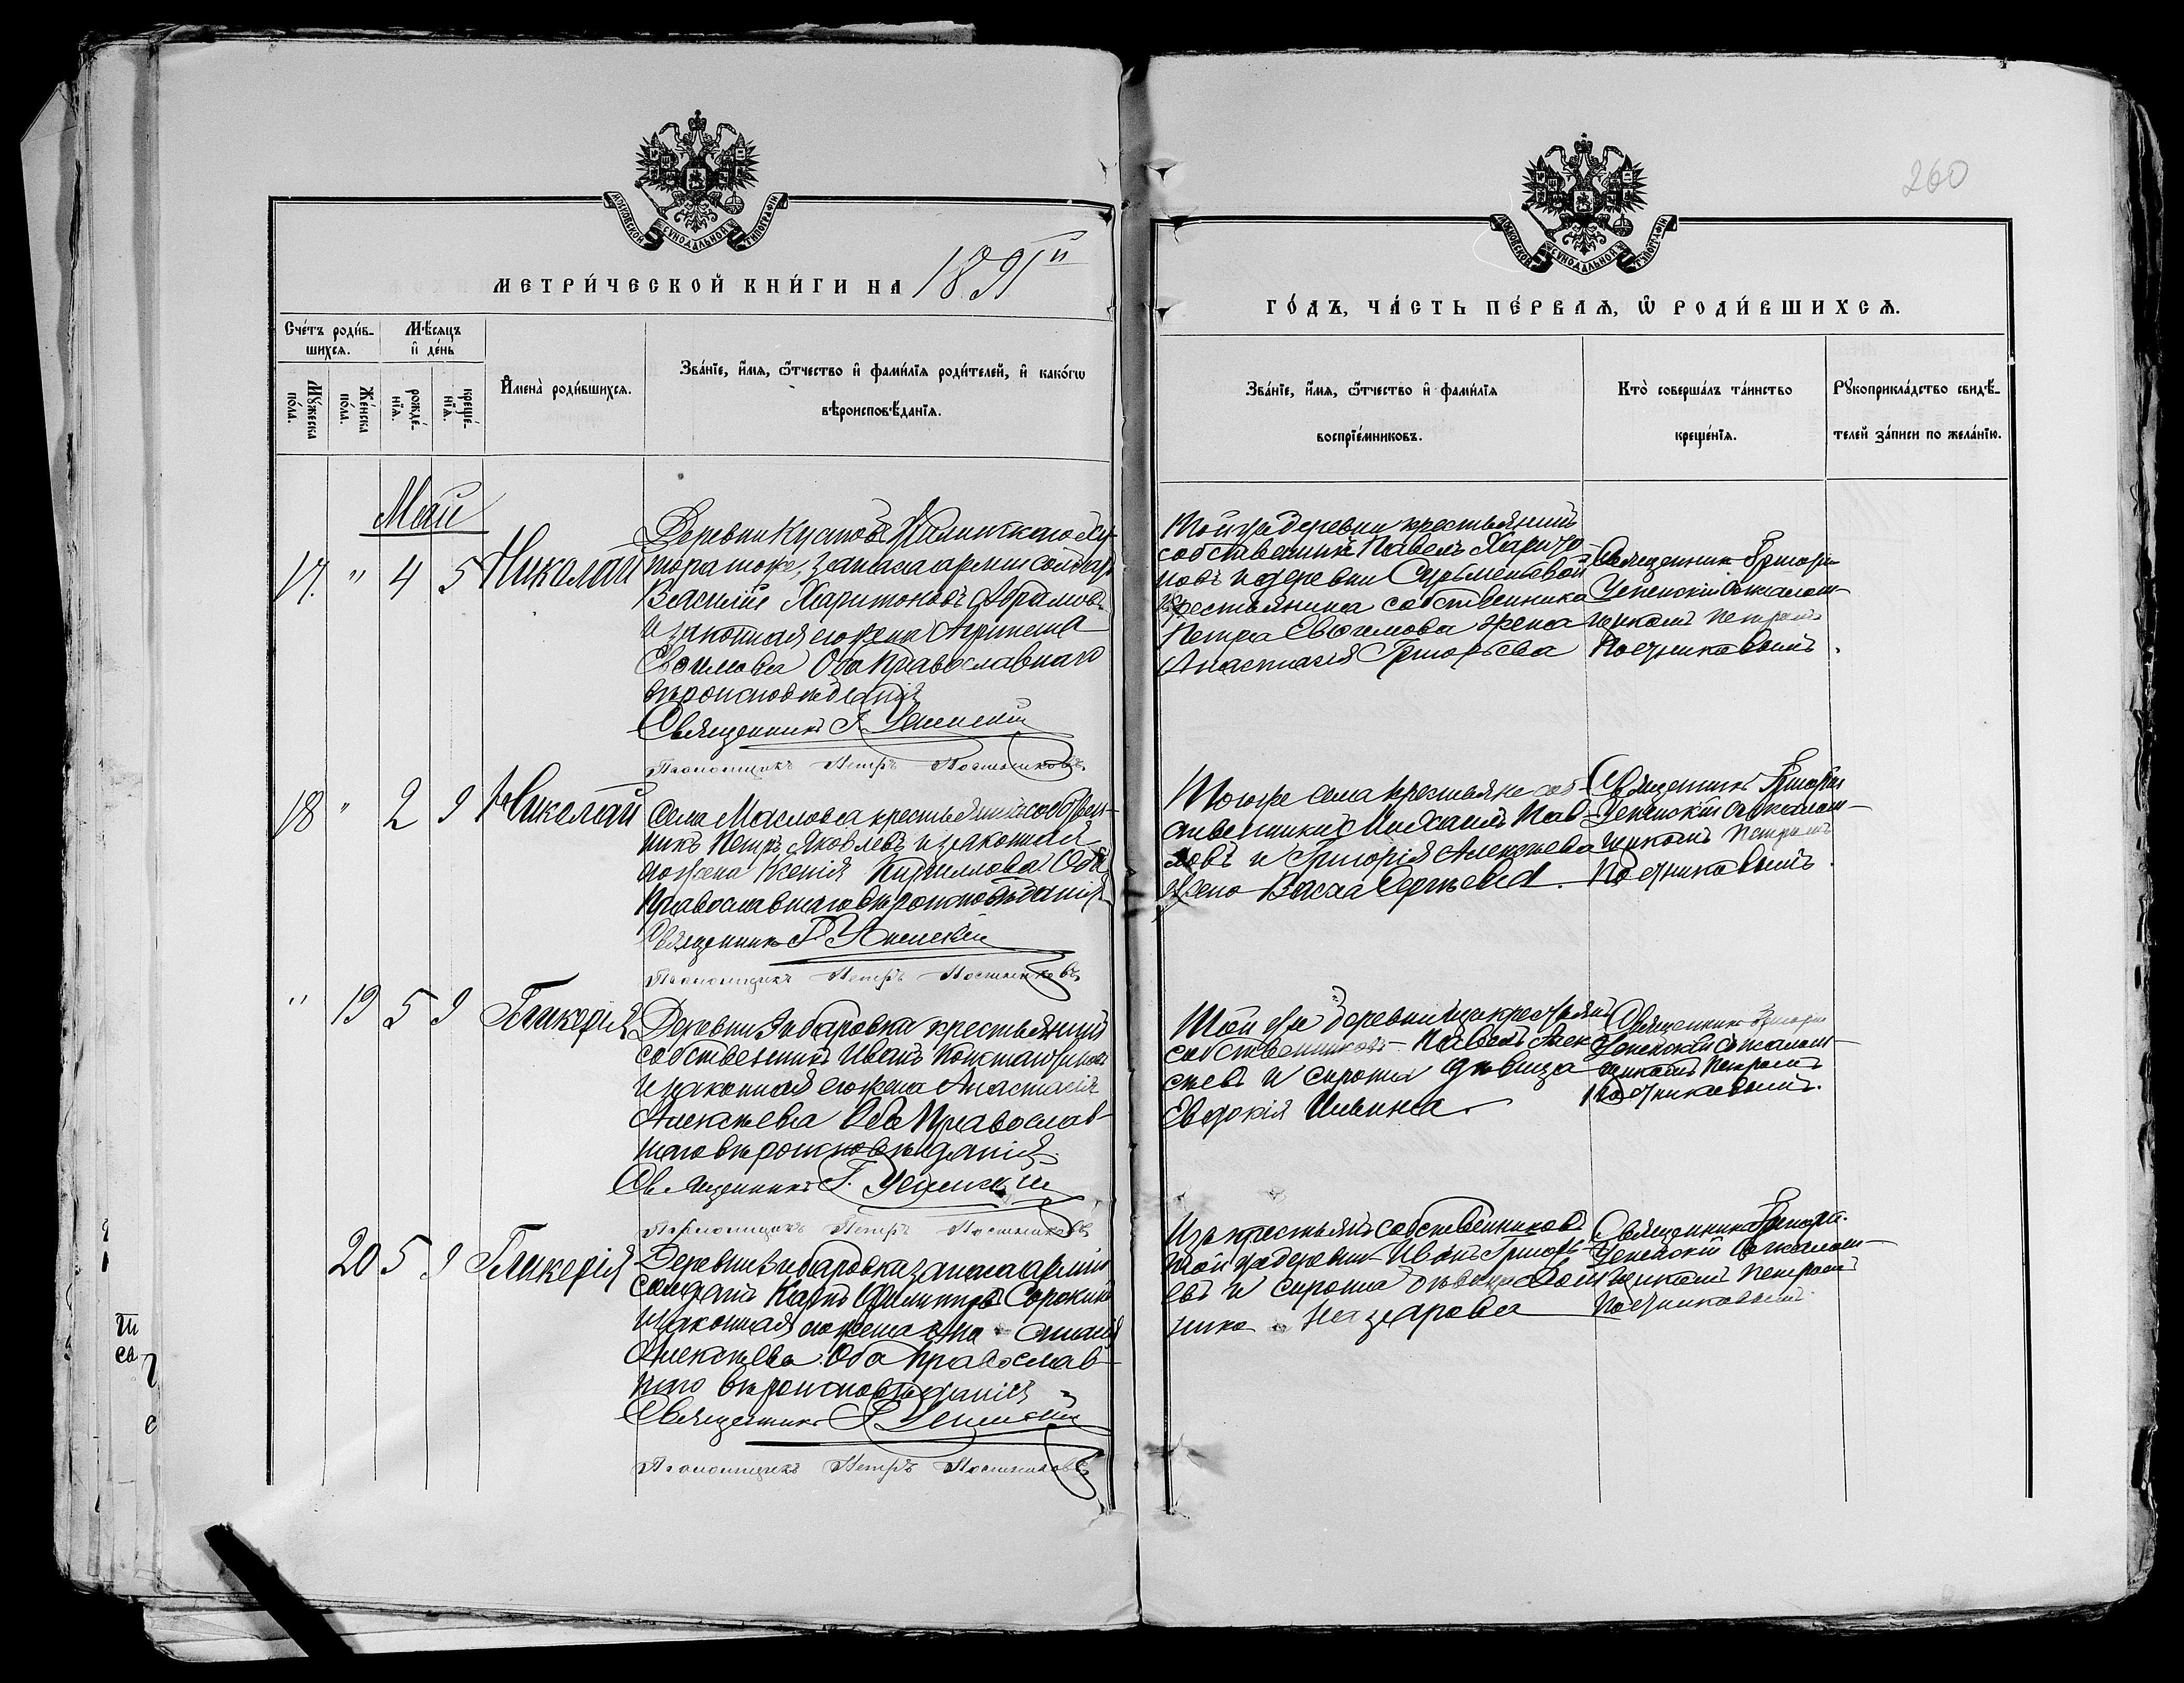 260
МОСКОВСКОЙ СѴНОДАЛЬНОЙ ТИПОГРАФІИ
МЕТРИ́ЧЕСКОЙ КНИ́ГИ НА 1891й
Сче́тъ роди́в-
шихсѧ.
Мѣ́сѧцъ
и҆ де́нь
Мꙋ́жеска
по́ла.
Же́нска
по́ла.
рожде́-
нїѧ.
креще́-
нїѧ.
И҆мена̀ роди́вшихсѧ.
Зва́нїе, и҆́мѧ, ѻ҆́тчество и҆ фами́лїѧ роди́телей, и҆ како́гѡ
вѣроисповѣ́данїѧ.
Май
17. " 4 5 Николай
Деревни Кустов
тора тоже, запаса армии солдат
Василій Харитоновъ Абрамовъ
и законная его жена Агрипена
Евдимова Оба Православнаго
вѣроисповѣданія
Священникъ Г. Успенскій
Псаломщикъ Петръ Постниковъ.
18 " 2 9 Николай
Села Маслова крестьянинъ собствен-
никъ Петръ Яковлевъ и законная
его жена Ксенія Кирилова Оба
Православнаго вѣроисповѣданія
Священникъ Г. Успенскій
Псаломщикъ Петръ Постниковъ
" 19 5 9 Гликерія
Деревни крестьянинъ
собственникъ Иванъ Константиновъ
и законная его жена Анастасія
Алексѣева Оба Православ-
наго вѣроисповѣданія.
Священникъ Г. Успенскій
Псаломщикъ Петръ Постниковъ
20 5 9 Гликерія
Деревни запаса арміи
солдатъ Карпъ Филиповъ Сорокинъ
и законная его жена
Алексѣева. Оба Православ-
наго вѣроисповѣданія
Священникъ Г. Успенскій
Псаломщикъ Петръ Постниковъ
МОСКОВСКОЙ СѴНОДАЛЬНОЙ ТИПОГРАФІИ
ГО́ДЪ, ЧА́СТЬ ПЕ́РВАѦ, Ѡ҆ РОДИ́ВШИХСѦ.
Зва́нїе, и҆́мѧ, ѻ҆́тчество и҆ фами́лїѧ
воспрїе́мниковъ.
Кто̀ соверша́лъ та́инство
креще́нїѧ.
Рꙋкоприкла́дство свидѣ́-
телей за́писи по жела́нїю.
Той же деревни крестьянинъ
собственникъ Павелъ Харито-
новъ и деревни
крестьянина собственника
Петра Евдимова жена
Анастасія Григорьева
Священникъ Григорій
Успенскій съ псалом-
щикомъ Петромъ
Постниковымъ.
Того же села крестьяне соб-
ственники Михаилъ Пав-
ловъ и Григорія Алексѣева
жена Васса Сергѣева.
Священникъ Григорій
Успенскій съ псалом-
щикомъ Петромъ
Постниковымъ.
Той же деревни изъ крестьянъ
собственниковъ Павелъ Алек-
сѣевъ и сирота дѣвица
Евдокія Ильина.
Священникъ Григорій
Успенскій съ псалом-
щикомъ Петромъ
Постниковымъ.
Изъ крестьянъ собственниковъ
той же деревни Иванъ Григорь-
евъ и сирота дѣвица Дом-
ника Назарова
Священникъ Григорій
Успенскій съ псалом-
щикомъ Петромъ
Постниковымъ.